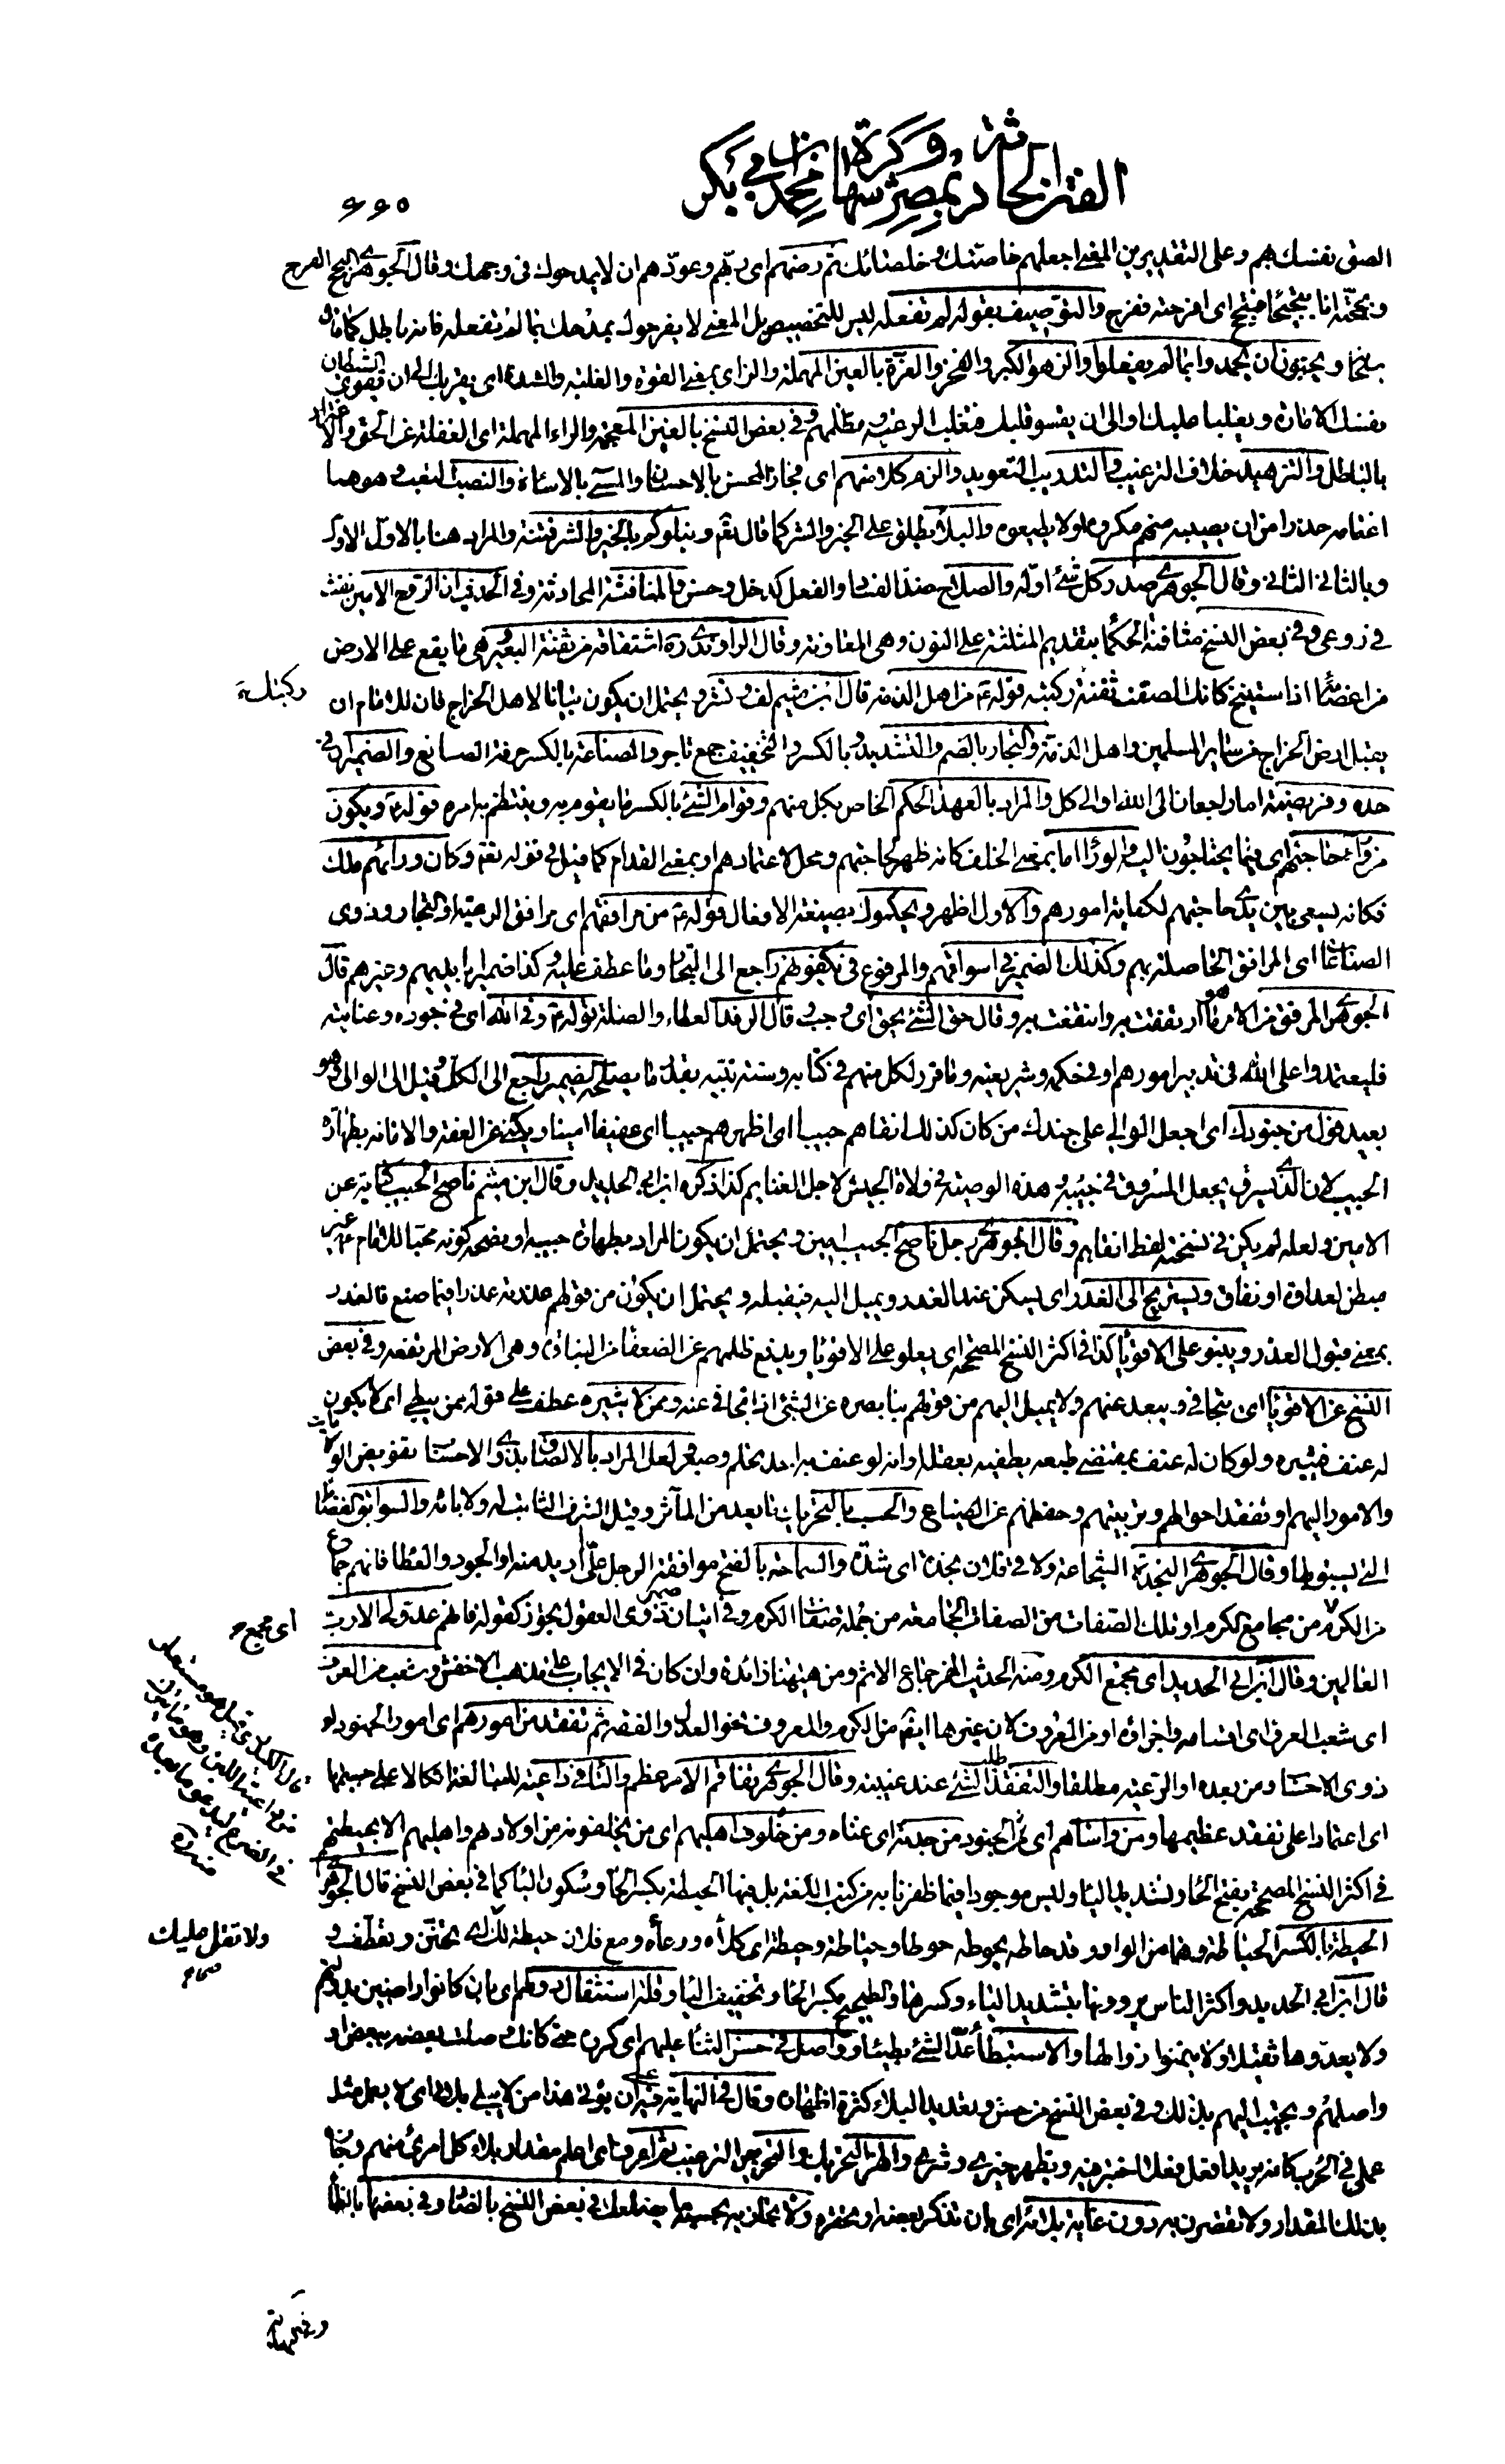 الفتن الحادثة بمصر وشهادة محمد بن ابي بكر
٦٦٥
الصق نفسك بهم وعلى التقديرين المعنى اجعلهم خاصتك وخلصائك ثم رضهم اى ربّهم وعوّدهم ان لا يمدحوك فى وجهك وقال الجوهرى البجح الفرح
وبجحته انا تبجيحا فتبجح اى افرحته ففرح والتوصيف بقوله لم تفعله ليس للتخصيص بل المعنى لا يفرحوك بمدحك بما لم تفعله فانه باطل كما قال
ويحبون ان يحمدوا بما لم يفعلوا والزهو الكبر والفخر والعزة بالعين المهملة والزاى بمعنى القوة والغلبة والشدة اى يقربك الى ان يقوى الشيطان
نفسك الامارة ويغلبا عليك او الى ان يقسو قلبك فتغلب الرعية وتظلمهم وفى بعض النسخ بالغين المعجمة والراء المهملة اى الغفلة عن الحق والاغترار
بالباطل والتزهيد خلاف الترغيب والتدريب التعويد والزم كلا منهم اى فجاز المحسن بالاحسان والمسئ بالاساءة والنصب التعب وهو هنا
اغتمامه حذرا من ان يصيبه منهم مكروه او لا يطيعوه والبلاء يطلق على الخير والشر كما قال تعم ونبلوكم بالخير والشر فتنة والمراد هنا بالاول الاول
وبالثانى الثانى وقال الجوهرى صدر كل شئ اوله والصلاح ضد الفساد والفعل كدخل وحسن والمنافثة المحادثة وفى الحديث ان الروح الامين نفث
فى روعى وفى بعض النسخ مثافنة الحكما بتقديم المثلثة على النون وهى المعاونة وقال الراوندى ره اشتقاقه من ثفنة البعير وهى ما يقع على الارض
من اعضائه اذا استنيخ كانك الصقت ثفنة ركبته قوله ع من اهل الذمة قال ابن ميثم لف ونشر ويحتمل ان يكون بيانا لاهل الخراج فان للامام ان
ركبتك
يقبل ارض الخراج من ساير المسلمين واهل الذمة والتجار بالضم والتشديد وبالكسر والتخفيف جمع تاجر والصناعة بالكسر حرفة الصانع والضمير فى
حده وفريضته اما راجعان الى الله او الى كل والمراد بالعهد الحكم الخاص بكل منهم وقوام الشئ بالكسر ما يقوم به وينتظم به امره قوله ع ويكون
من وراء حاجتهم اى فيما يحتاجون اليه والوراء اما بمعنى الخلف كانه ظهر لحاجتهم ومحل لاعتمادهم او بمعنى القدام كما قيل فى قوله تعم وكان ورائهم ملك
فكانه يسعى بين يدى حاجتهم لكفاية امورهم والاول اظهر ويحكمون بصيغة الافعال قوله ع من مرافقهم اى مرافق الرعية او التجار وذوى
الصناعات اى المرافق الحاصلة بهم وكذلك الضمير فى اسواقهم والمرفوع فى يكفونهم راجع الى التجار وما عطف عليه وكذا ضمير ايديهم وغيرهم قال
الجوهرى المرفق من الامر ما ارتفقت به وانتفعت به وقال حق الشئ يحق اى وجب وقال الرفد العطاء والصلة قوله ع وفى الله اى فى جوده وعنايته
فليعتمدوا على الله فى تدبير امورهم او فى حكمه وشريعته وما قرر لكل منهم فى كتابه وسنة نبيه بقدر ما يصلحه الضمير راجع الى الكل وقيل الى الوالى وهو
بعيد فول من جنودك اى اجعل الوالى على جندك من كان كذلك انقاهم جيبا اى اطهرهم جيبا اى عفيفا امينا ويكنى عن العفة والامانة بطهارة
الجيب لان الذى يسرق يجعل المسروق فى جيبه وهذه الوصية فى ولاة الجيش لاجل الغنايم كذا ذكره ابن ابى الحديد وقال ابن ميثم ناصح الجيب كناية عن
الامين ولعله لم يكن فى نسخته لفظ انقاهم وقال الجوهرى رجل ناصح الجيب امين ويحتمل ان يكون المراد بطهارة جيبه او نصحه كونه محبا للامام ع غير
مبطن لعداوة او نفاق ويستريح الى العذر اى يسكن عند العذر ويميل اليه فيقبله ويحتمل ان يكون من قولهم عذرته عذرا فيما صنع فالعذر
بمعنى قبول العذر وينبو على الاقوياء كذا فى اكثر النسخ المصححة اى يعلو على الاقوياء ويدفع ظلمهم عن الضعفاء من النباوة وهى الارض المرتفعة وفى بعض
النسخ عن الاقوياء اى يتجافى ويبعد عنهم ولا يميل اليهم من قولهم نبا بصره عن الشئ اذا تجافى عنه وممن لا يثيره عطف على قوله ممن يبطئ اى لا يكون
له عنف فيثيره ولو كان له عنف بمقتضى طبعه يطفيه بعقله او انه لو عنف به احد يحلم وصبر ولعل المراد بالالصاق بذوى الاحساب تفويض الولايات
والامور اليهم او تفقد احوالهم وتربيتهم وحفظهم عن الضياع والحسب بالتحريك ما يعد من المآثر وقيل الشرف الثابت له ولابائه والسوابق الفضائل
التى يسبق بها وقال الجوهرى النجدة الشجاعة ولاقى فلان نجدة اى شدة والسماحة بالفتح موافقة الرجل على ما اريد منه او الجود والعطا فانهم جماع
من الكرم من مجامع الكرم او تلك الصفات من الصفات الجامعة من جملة صفات الكرم وفى اتيان ضمير ذوى العقول تجوز كقوله فانهم عدو لى الا رب
اى مجمع
العالمين وقال ابن ابى الحديد اى مجمع الكرم ومنه الحديث الخمر جماع الاثم ومن هيهنا زائدة وان كان فى الايجاب على مذهب الاخفش وشعب من العرف
اى شعب العرف اى اقسامه واجزائه او من المعروف لان غيرها ايضا من الكرم والمعروف نحو العدل والفقه ثم تفقد من امورهم اى امور الجنود او
ذوى الاحساب ومن بعده او الرعية مطلقا والتفقد طلب الشئ عند غيبته وقال الجوهرى تفاقم الامر عظم والتاء فى داعية للمبالغة اتكالا على جسيمها
اى اعتمادا على تفقد عظيمها ومن واساهم اى من الجنود من جدته اى غناه ومن خلوف اهليهم اى من يخلفونه من اولادهم واهليهم الا بحيطتهم
فى اكثر النسخ المصححة بفتح الحا وتشديد اليا وليس موجودا فيما ظفرنا به من كتب اللغة بل فيها الحيطة بكسر الحا وسكون اليا كما فى بعض النسخ قال الجوهرى
الحيطة بالكسر الحياطة وهما من الواو وقد حاطه يحوطه حوطا وحياطة وحيطة اى كلأه ورعاه ومع فلان حيطة لك اى تحنن وتعطف و
ولا تقل عليك
قال ابن ابى الحديد واكثر الناس يروونها بتشديد الياء وكسرها والصحيح بكسر الحا وتخفيف اليا وقلة استثقال دولهم اى بان كانوا راضين بدولتهم
ولا يعدوها ثقيلا ولا يتمنوا زوالها والاستبطاء عد الشئ بطيئا وواصل فى حسن الثناء عليهم اى كرره حتى كانك وصلت بعضه ببعض او
واصلهم وتحبب اليهم بذلك وفى بعض النسخ من حسن وتعديد البلاء كثرة اظهاره وقال فى النهاية فيه عسى ان يؤتى هذا من لا يبلى بلائى اى لا يعمل مثل
عملى فى الحرب كانه يريد افعل فعلا اختبر فيه ويظهر خيرى وشرى والهز التحريك والتحريص الترغيب ثم اعرف اى اعلم مقدار بلاء كل امرئ منهم وجازه
بذلك المقدار ولا تقصرن به دون غاية بلائه اى بان تذكر بعضه او تحقره
وفى النهاية